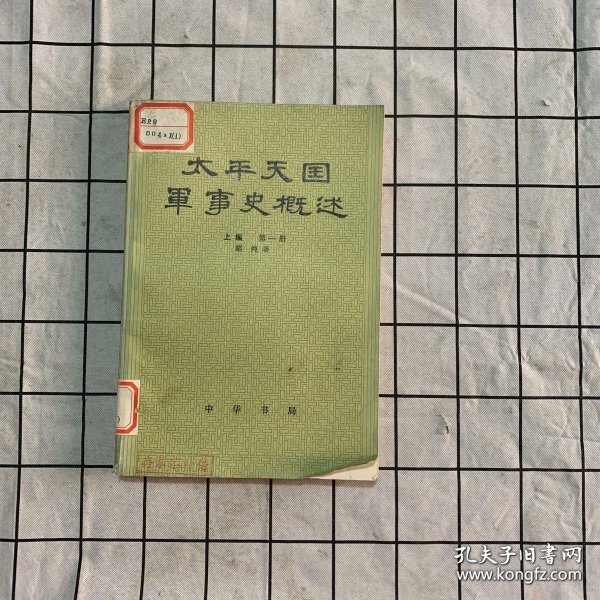 E29
004:1(1)
太平天囯
軍事史概述
上编 第一册
郦纯著
中华书局
孔夫子旧书网
www.kongfz.com